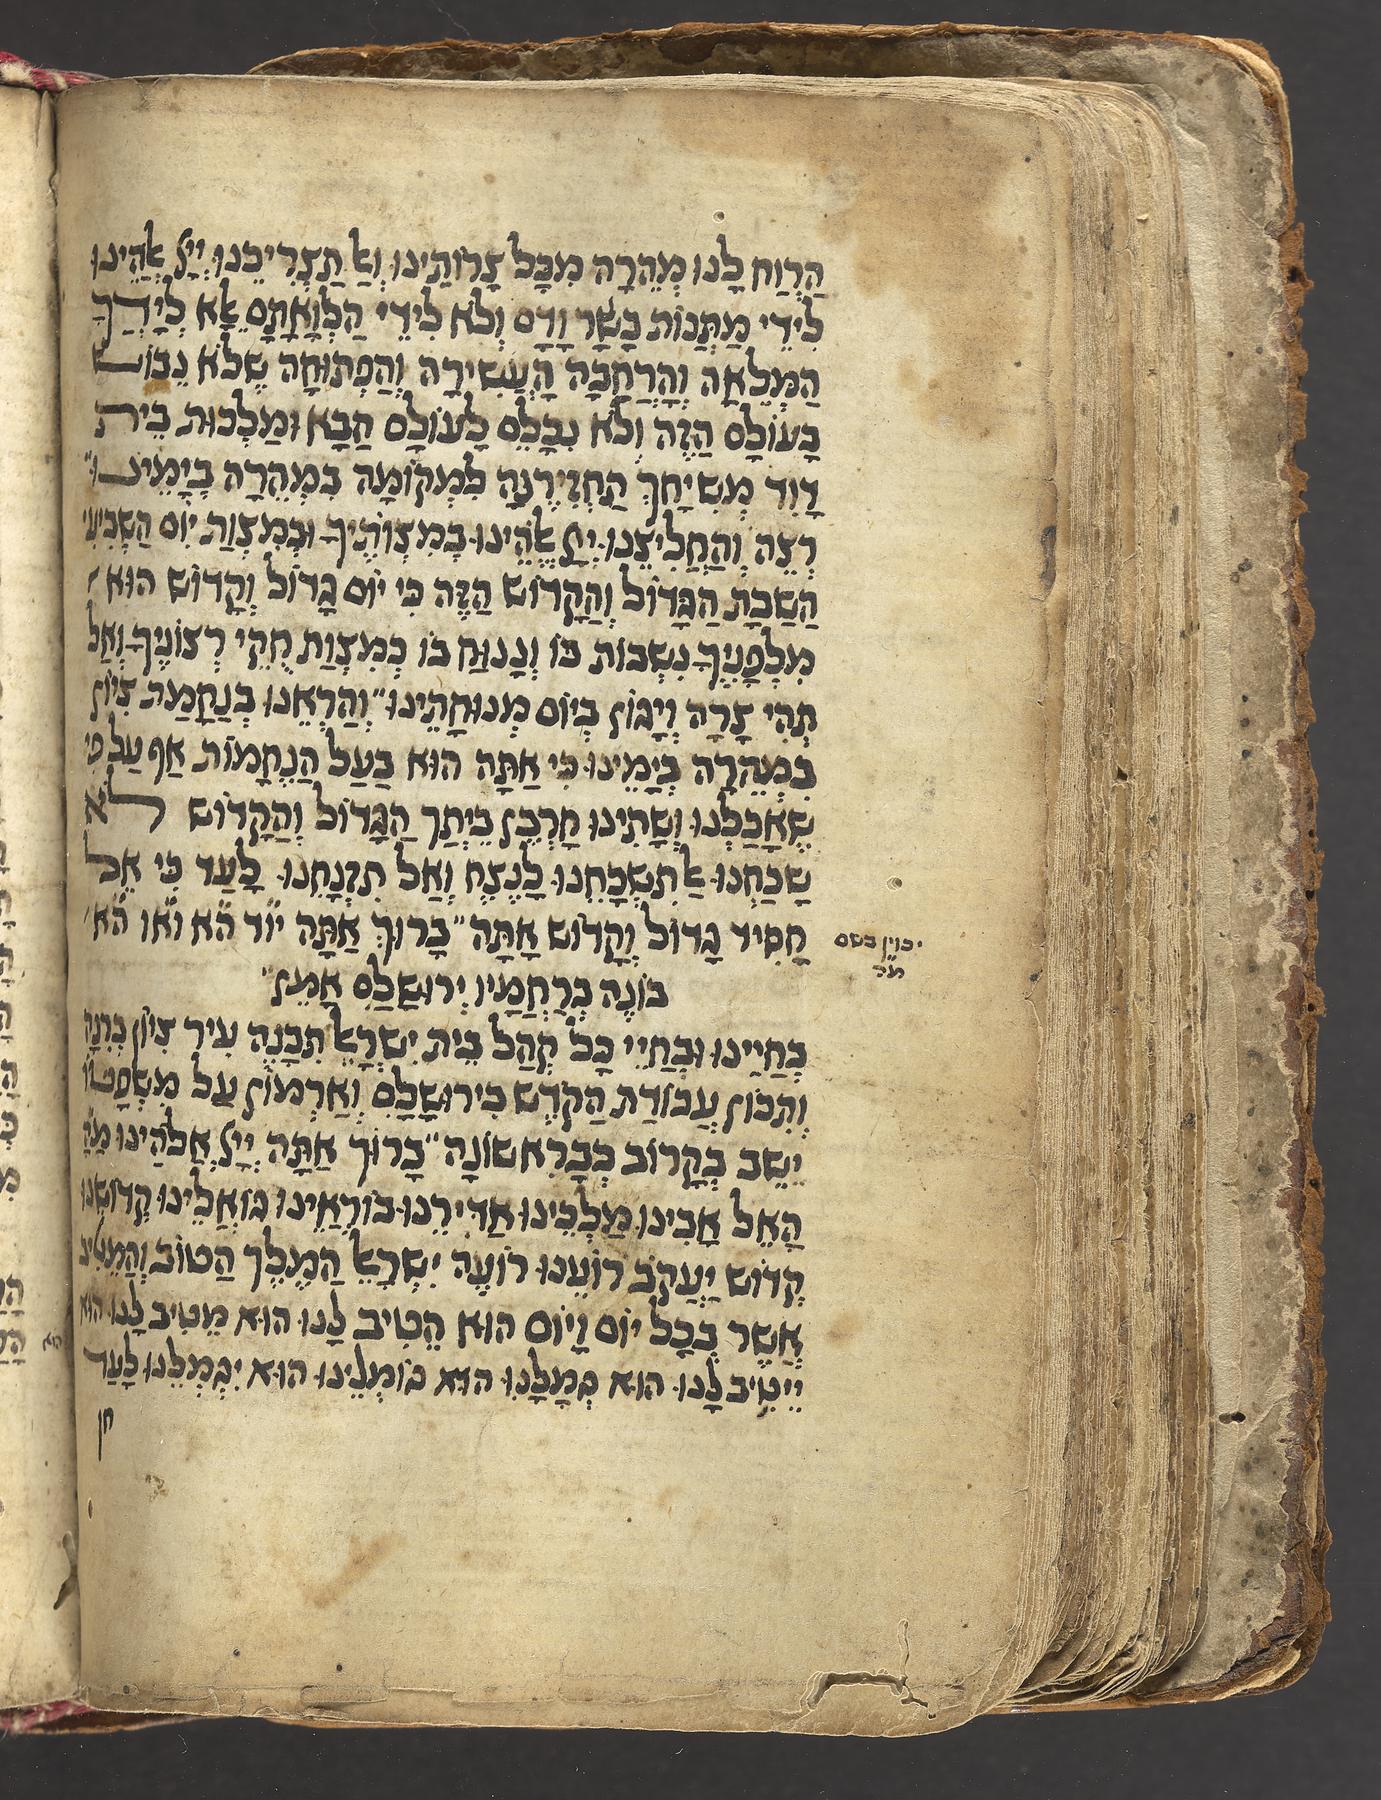 הַרְוַח לָנוּ מְהֵרָה מִכָּל צָרוֹתֵינוּ וְאַל תַצְרִיכֵנוּ יְיָ אֱלֹהֵינוּ
לִידֵי מַתְּנוֹת בָּשָׂר וָדָם וְלֹא לִידֵי הַלְוָאָתָם אֶלָא לְיָדְךָ
הַמְלֵאָה וְהָרְחָבָה הָעֲשִׁירָה וְהַפְתוּחָה שֶׁלֹא נֵבוֹשׁ
בָּעוֹלָם הַזֶּה וְלֹא נִכָּלֵם לָעוֹלָם הַבָּא וּמַלְכוּת בֵּית
דָוִד מְשִׁיחָךְ תַּחְזִירֶנָּה לִמְקוֹמָהּ בִּמְהֵרָה בְיָמֵינוּ
רְצֵה וְהַחֲלִיצֵנוּ יְיָ אֱלֹהֵינוּ בְּמִצְוֹתֶיךָ וּבְמִצְוַת יוֹם הַשְּׁבִיעִי
הַשַּׁבָּת הַגָּדוֹל וְהַקָּדוֹשׁ הַזֶּה כִּי יוֹם גָּדוֹל וְקָדוֹשׁ הוּא
מִלְּפָנֶיךָ נִשְׁבּוֹת בּוֹ וְנָנוּחַ בּוֹ כְּמִצְוַת חֻקֵּי רְצוֹנֶךָ וְאַל
תְּהִי צָרָה וְיָגוֹן בְּיוֹם מְנוּחָתֵינוּ וְהַרְאֵנוּ בְּנֶחָמַת צִיּוֹן
בִּמְהֵרָה בְיָמֵינוּ כִּי אַתָּה הוּא בַּעַל הַנֶּחָמוֹת אַף עַל פִּי
שֶׁאָכַלְנוּ וְשָׁתִינוּ חָרְבַּן בֵּיתְךָ הַגָּדוֹל וְהַקָּדוֹשׁ לֹא
שָׁכַחְנוּ אַל תִּשְׁכָּחֵנוּ לָנֶצַח וְאַל תִּזְנָחֵנוּ לָעַד כִּי אֵל
חָסִיד גָּדוֹל וְקָדוֹשׁ אָתָּה בָּרוּךְ אַתָּה יוֹד הֵא וָאו הֵא
יכוין בשם
בּוֹנֶה בְּרַחֲמָיו יְרוּשָׁלַםִ אָמֵן
בְּחַיֵּינוּ וּבְחַיֵּי כָּל קְהַל בֵּית יִשְׂרָאֵל תִּבָּנֶה עִיר צִיּוֹן בְּרִנָּה
וְתִכּוֹן עֲבוֹדַת הַקֹּדֶשׁ בִּירוּשָׁלַםִ וְאַרְמוֹן עַל מִשְׁפָּטוֹ
יֵשֵׁב בְּקָרוֹב כְּבָרִאשׁוֹנָה בָּרוּךְ אַתָּה יְיָ אֱלֹהֵינוּ מֶ״הָ
הָאֵל אָבִינוּ מַלְכֵּינוּ אַדִירֵנוּ בּוֹרְאֵינוּ גּוֹאֲלֵינוּ קְדוֹשֵׁנוּ
קְדוֹשׁ יַעֲקֹב רוֹעֵנוּ רוֹעֵה יִשְׂרָאֵל הַמֶּלֶךְ הַטּוֹב וְהַמֵּטִיב
אֲשֶׁר בְּכָל יוֹם וָיוֹם הוּא הֵטִיב לָנוּ הוּא מֵטִיב לָנוּ הוּא
יֵיטִיב לָנוּ הוּא גְמָלָנוּ הוּא גוֹמְלֵינוּ הוּא יִגְמְלֵנוּ לָעַד
חן